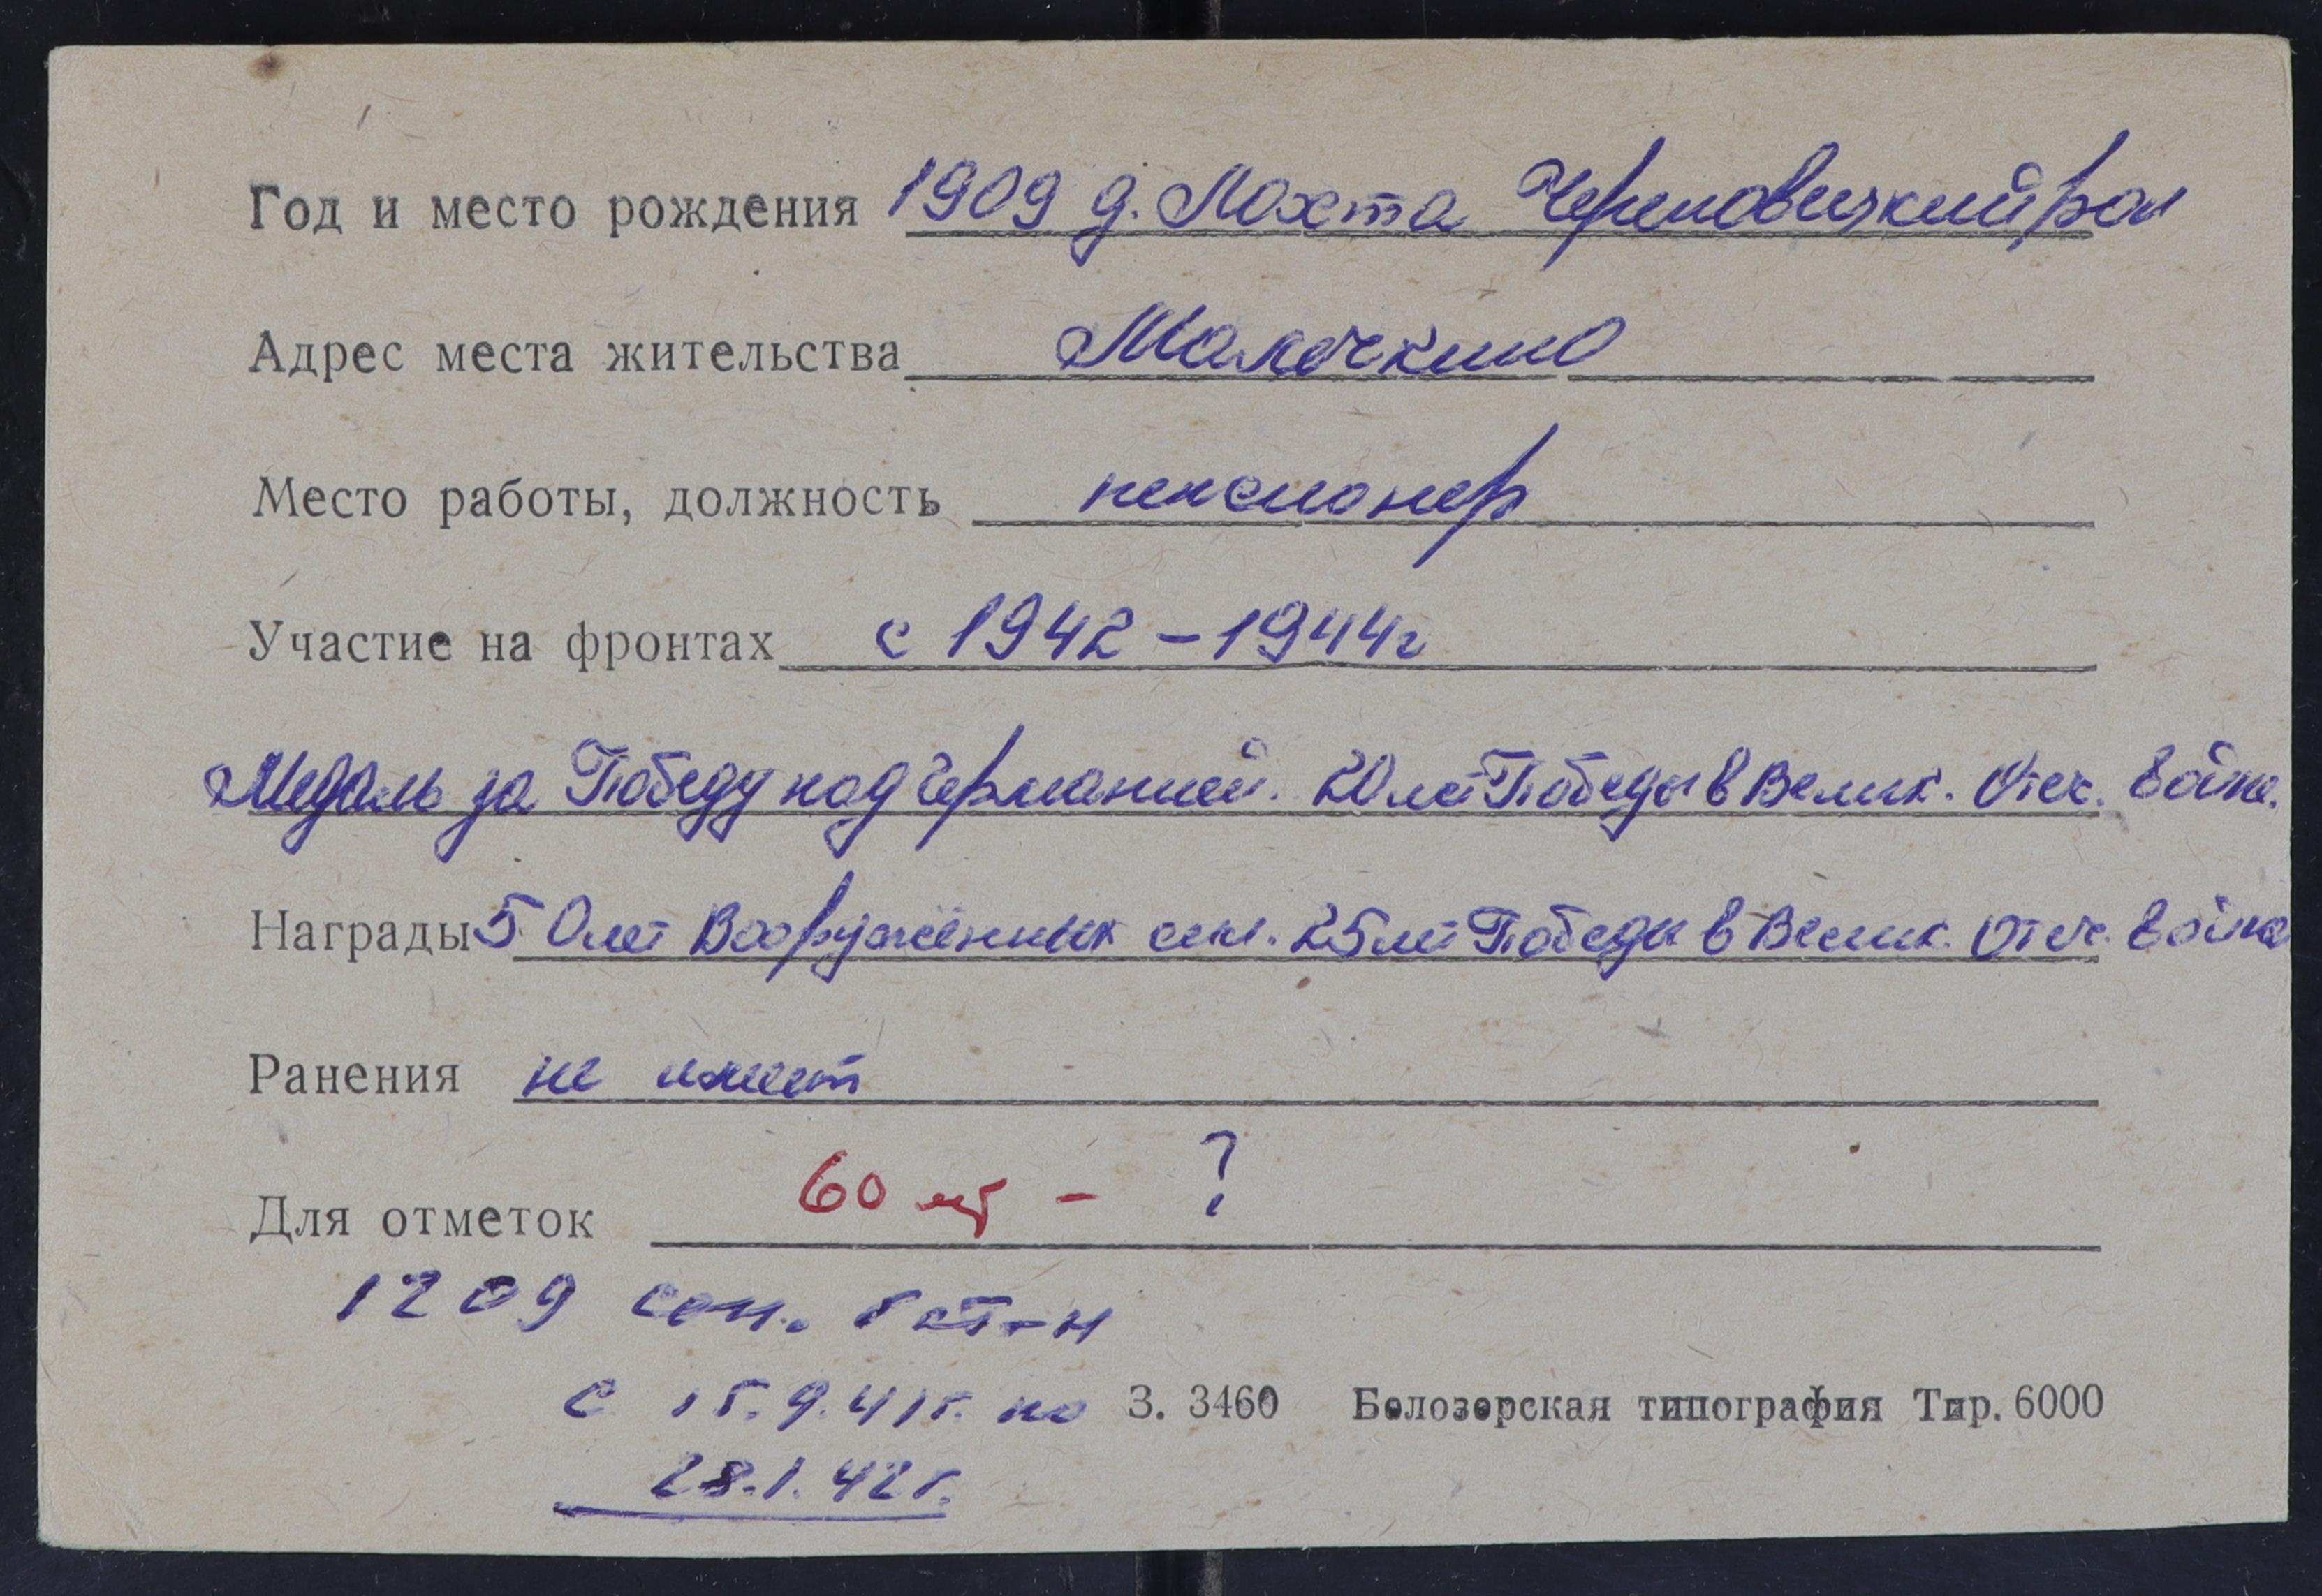 Год и место рождения 1909 д. Мохта Череповецкий рай
Адрес места жительства Малечкино
Место работы, должность пенсионер
Участие на фронтах с 1942 - 1944 г
Медаль за Победу над Германией. 20 лет Победы в Велик. Отеч. войне.
Награды 50 лет Вооружённых сил. 25 лет Победы в Велик. Отеч. войне
Ранения не имеет
Для отметок 60 - ?
1209 бат-н
с 15.9.41г. по З. 3460 Белозерская типография Тир. 6000
28.1.42г.